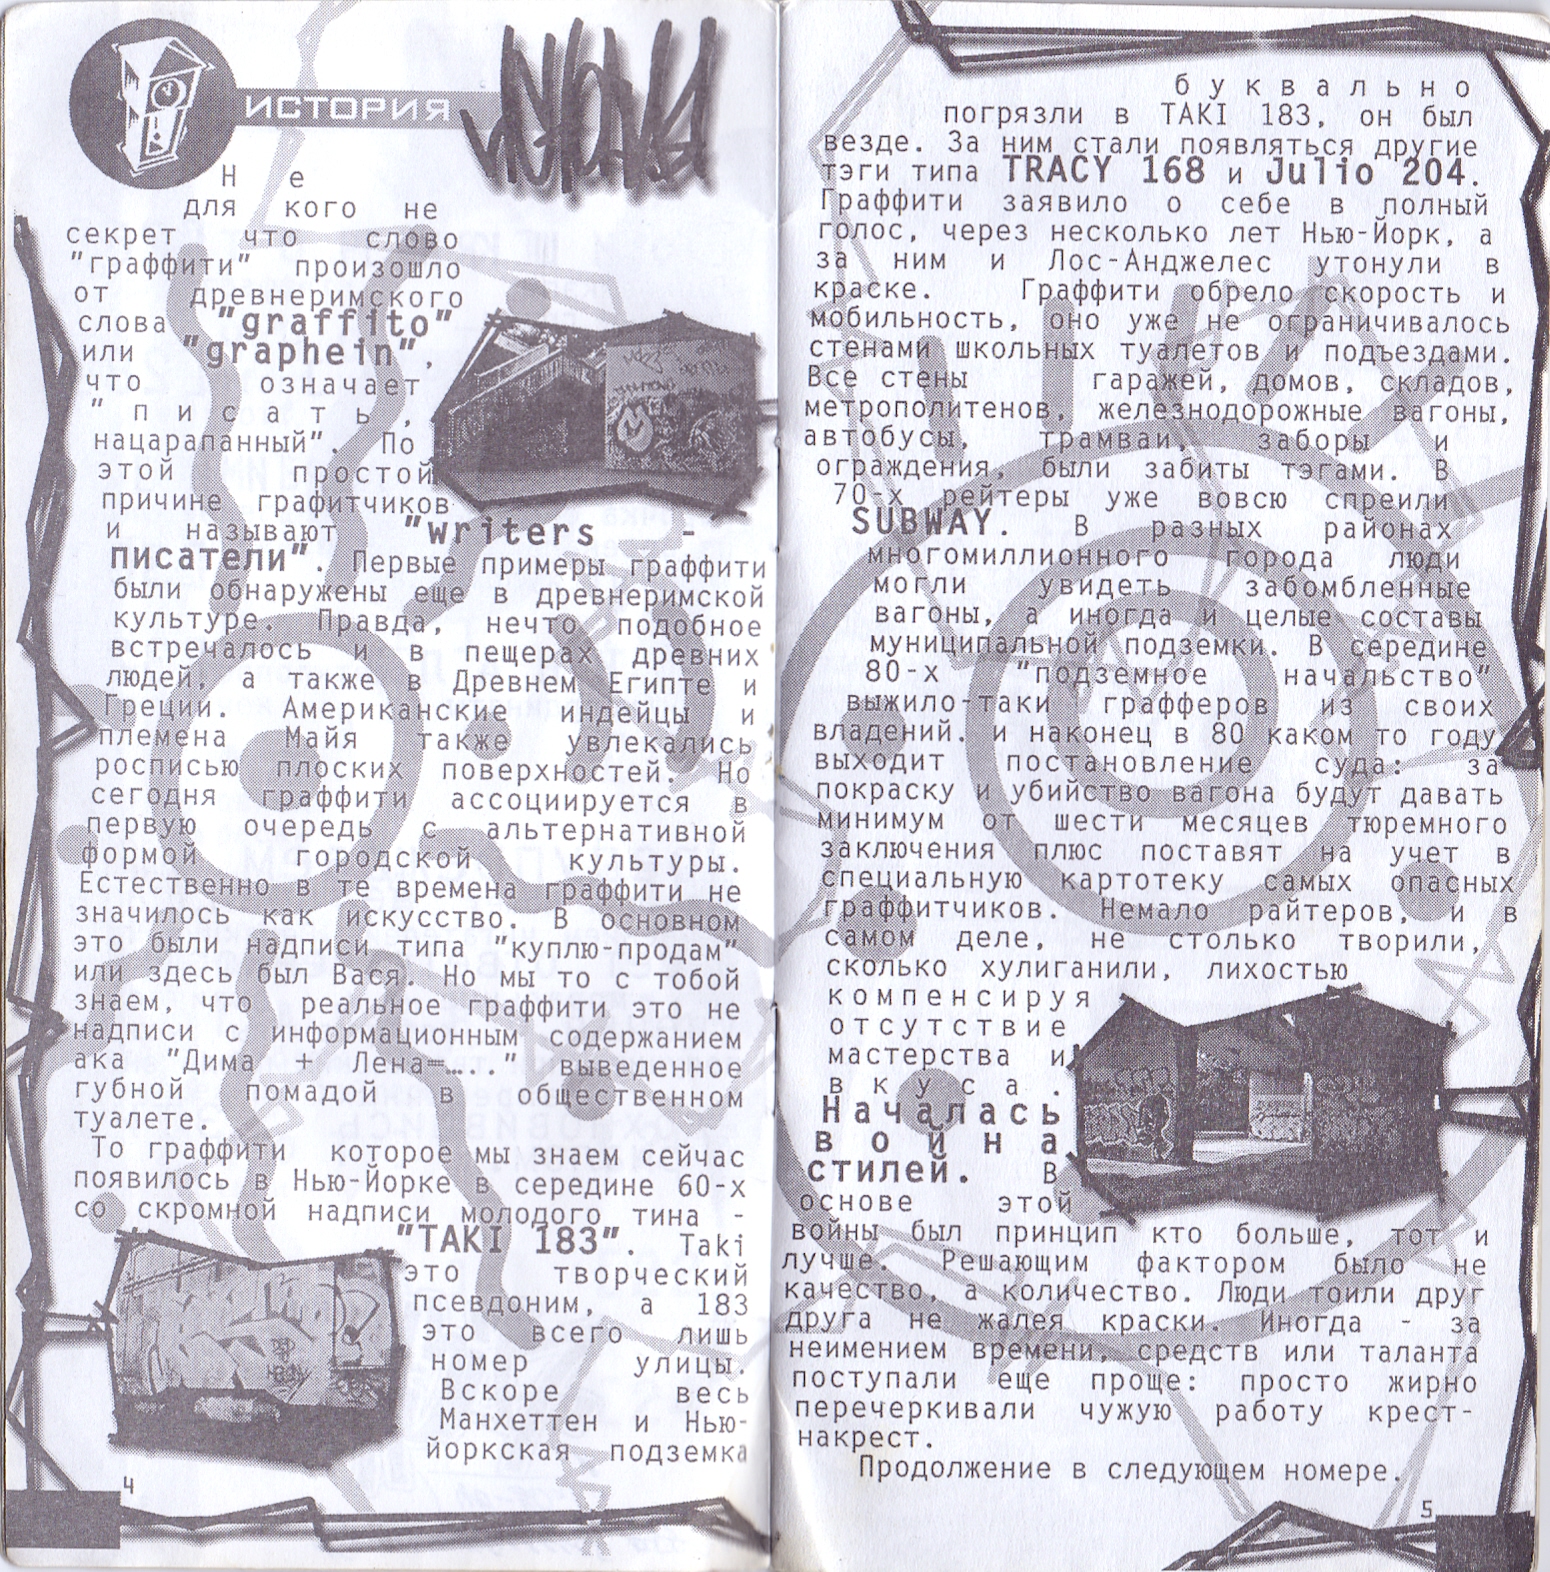 ИСТОРИЯ
Не
для кого не
секрет что слово
"граффити" произошло
от древнеримского
слова "graffito"
или "graphein",
что означает
"писать,
нацарапанный". По
этой простой
причине графитчиков
и называют "writers -
писатели". Первые примеры граффити
были обнаружены еще в древнеримской
культуре. Правда, нечто подобное
встречалось и в пещерах древних
людей, а также в Древнем Египте и
Греции. Американские индейцы и
племена Майя также увлекались
росписью плоских поверхностей. Но
сегодня граффити ассоциируется в
первую очередь с альтернативной
формой городской культуры.
Естественно в те времена граффити не
значилось как искусство. В основном
это были надписи типа "куплю-продам"
или здесь был Вася. Но мы то с тобой
знаем, что реальное граффити это не
надписи с информационным содержанием
ака "Дима + Лена=….." выведенное
губной помадой в общественном
туалете.
То граффити которое мы знаем сейчас
появилось в Нью-Йорке в середине 60-х
со скромной надписи молодого тина -
"TAKI 183". Taki
это творческий
псевдоним, а 183
это всего лишь
номер улицы.
Вскоре весь
Манхеттен и Нью-
йоркская подземка
4
буквально
погрязли в TAKI 183, он был
везде. За ним стали появляться другие
тэги типа TRACY 168 и Julio 204.
Граффити заявило о себе в полный
голос, через несколько лет Нью-Йорк, а
за ним и Лос-Анджелес утонули в
краске. Граффити обрело скорость и
мобильность, оно уже не ограничивалось
стенами школьных туалетов и подъездами.
Все стены гаражей, домов, складов,
метрополитенов, железнодорожные вагоны,
автобусы, трамваи, заборы и
ограждения, были забиты тэгами. В
70-х рейтеры уже вовсю спреили
SUBWAY. В разных районах
многомиллионного города люди
могли увидеть забомбленные
вагоны, а иногда и целые составы
муниципальной подземки. В середине
80-х "подземное начальство"
выжило-таки графферов из своих
владений. и наконец в 80 каком то году
выходит постановление суда: за
покраску и убийство вагона будут давать
минимум от шести месяцев тюремного
заключения плюс поставят на учет в
специальную картотеку самых опасных
граффитчиков. Немало райтеров, и в
самом деле, не столько творили,
сколько хулиганили, лихостью
компенсируя
отсутствие
мастерства и
вкуса.
Началась
война
стилей. В
основе этой
войны был принцип кто больше, тот и
лучше. Решающим фактором было не
качество, а количество. Люди тоили друг
друга не жалея краски. Иногда - за
неимением времени, средств или таланта
поступали еще проще: просто жирно
перечеркивали чужую работу крест-
накрест.
Продолжение в следующем номере.
5